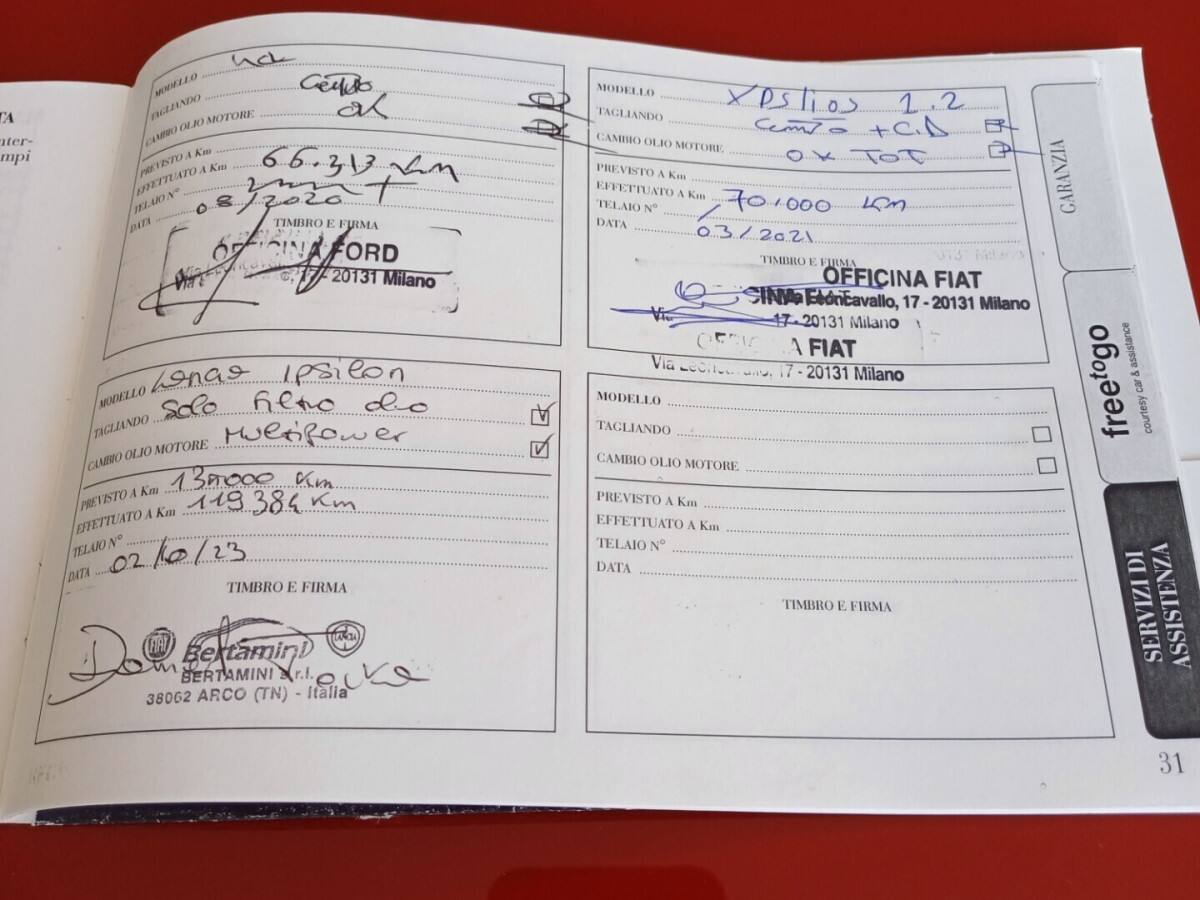 TA
nter-
mpi
MODELLO
TAGLIANDO
CAMBIO OLIO MOTORE ok
PREVISTO A Km
EFFETTUATO A Km 66.313 Km
TELAIO N°
DATA 08/2020
TIMBRO E FIRMA
OFFICINA FORD
Via Leoncavallo, 17 - 20131 Milano
MODELLO 1.2
TAGLIANDO
CAMBIO OLIO MOTORE
PREVISTO A Km
EFFETTUATO A Km 70.000 Km
TELAIO N°
DATA 03/2021
TIMBRO E FIRMA
OFFICINA FIAT
Leoncavallo, 17 - 20131 Milano
17 - 20131 Milano
FIAT
Via Leoncavallo, 17 - 20131 Milano
MODELLO Ipsilon
TAGLIANDO Solo Filtro olio
CAMBIO OLIO MOTORE Multipower
PREVISTO A Km
EFFETTUATO A Km 119.384 Km
TELAIO N°
DATA 02/10/23
TIMBRO E FIRMA
FIAT Bertamini LANCIA
BERTAMINI s.r.l.
38062 ARCO (TN) - Italia
MODELLO
TAGLIANDO
CAMBIO OLIO MOTORE
PREVISTO A Km
EFFETTUATO A Km
TELAIO N°
DATA
TIMBRO E FIRMA
GARANZIA
freetogo
courtesy car & assistance
SERVIZI DI
ASSISTENZA
31